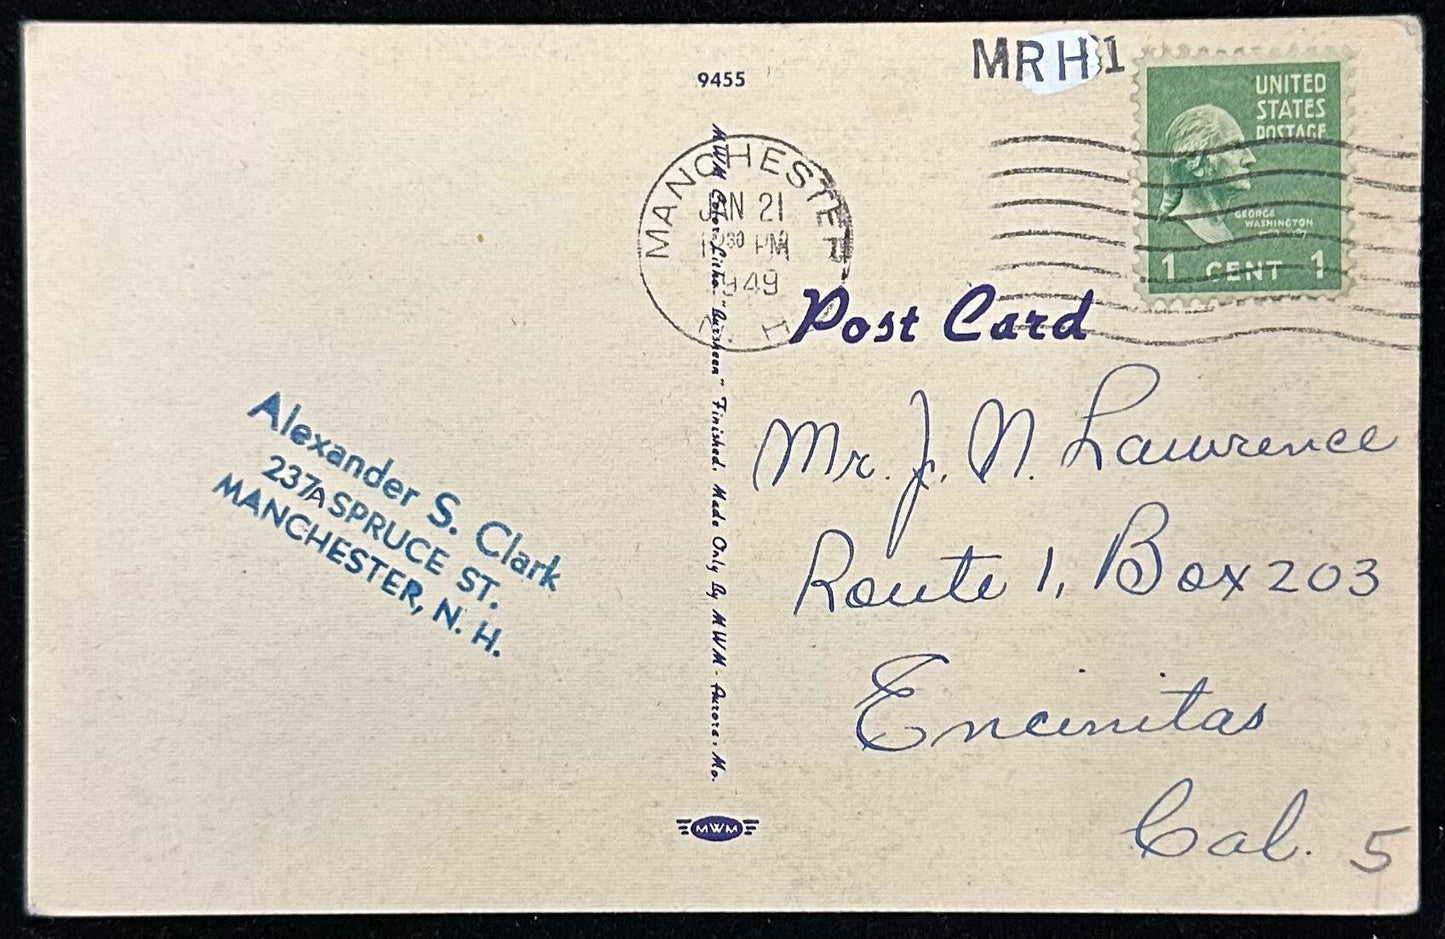 9455
MRH1
UNITED
STATES
POSTAGE
GEORGE
WASHINGTON
1 CENT 1
MANCHESTER
JAN 21
30 PM
1949
Post Card
MWM Color-Litho. "Aursheen" Finished. Made Only By MWM - Aurora, Mo.
Alexander S. Clark
237A SPRUCE ST.
MANCHESTER, N. H.
Mr. J. N. Lawrence
Route 1, Box 203
Encinitas
Cal.
5
MWM